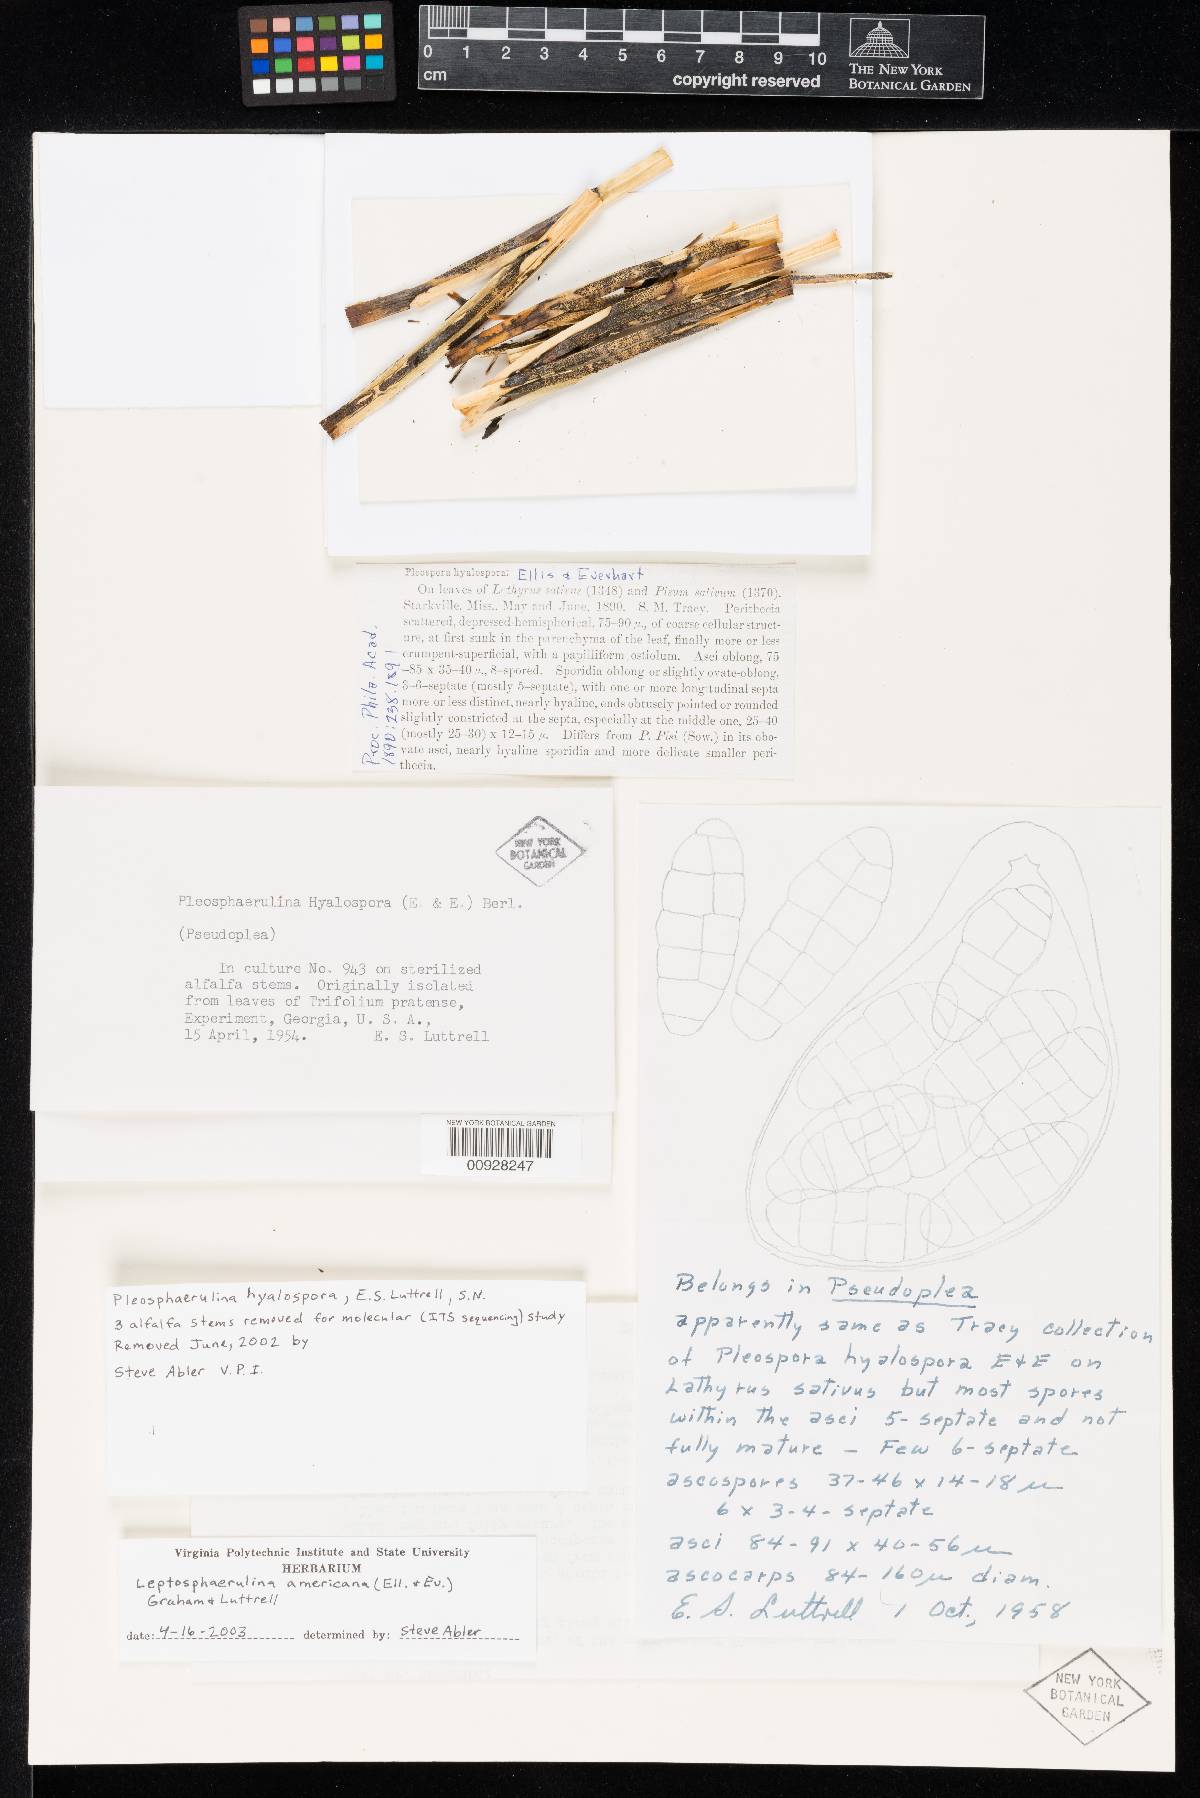 0 1 2 3 4 5 6 7 8 9 10
cm
copyright reserved
THE NEW YORK
BOTANICAL GARDEN
Pleospora hyalospora: Ellis & Everhart
On leaves of Lathyrus sativus (1348) and Pisum sativum (1370).
Starkville, Miss., May and June, 1890. S. M. Tracy. Perithecia
scattered, depressed-hemispherical, 75–90 µ, of coarse cellular struct-
ure, at first sunk in the parenchyma of the leaf, finally more or less
erumpent-superficial, with a papilliform ostiolum. Asci oblong, 75
–85 x 35–40 µ, 8-spored. Sporidia oblong or slightly ovate-oblong,
3–6-septate (mostly 5-septate), with one or more longitudinal septa
more or less distinct, nearly hyaline, ends obtusely pointed or rounded
slightly constricted at the septa, especially at the middle one, 25–40
(mostly 25–30) x 12–15 µ. Differs from P. Pisi (Sow.) in its obo-
vate asci, nearly hyaline sporidia and more delicate smaller peri-
thecia.
Proc. Phila. Acad.
1890:238. 1891
NEW YORK
BOTANICAL
GARDEN
Pleosphaerulina Hyalospora (E. & E.) Berl.
(Pseudoplea)
In culture No. 943 on sterilized
alfalfa stems. Originally isolated
from leaves of Trifolium pratense,
Experiment, Georgia, U. S. A.,
15 April, 1954. E. S. Luttrell
NEW YORK BOTANICAL GARDEN
00928247
Pleosphaerulina hyalospora, E.S. Luttrell, S.N.
3 alfalfa stems removed for molecular (ITS sequencing) study
Removed June, 2002 by
Steve Abler V.P.I.
Virginia Polytechnic Institute and State University
HERBARIUM
Leptosphaerulina americana (Ell. & Ev.)
Graham & Luttrell
date: 4-16-2003 determined by: Steve Abler
Belongs in Pseudoplea
apparently same as Tracy collection
of Pleospora hyalospora E & E on
Lathyrus sativus but most spores
within the asci 5-septate and not
fully mature – Few 6-septate
ascospores 37-46 x 14-18 µ
6 x 3-4-septate
asci 84-91 x 40-56 µ
ascocarps 84-160 µ diam.
E. S. Luttrell 1 Oct., 1958
NEW YORK
BOTANICAL
GARDEN